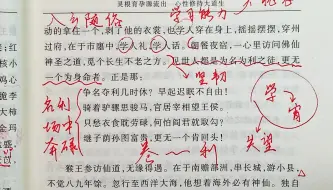 灵根育孕源流出 心性修持大道生
入乡随俗
学习能力
动的拿住一个，剥了他的衣裳，也学人穿在身上，摇摇摆摆，穿州
过府，在于市廛中，学人礼，学人话。朝餐夜宿，一心里访问佛仙
神圣之道，觅个长生不老之方。见世人都是为名为利之徒，更无
一个为身命者。正是那：
坚韧
争名夺利几时休？早起迟眠不自由！
骑着驴骡思骏马，官居宰相望王侯。
只愁衣食耽劳碌，何怕阎君就取勾？
继子荫孙图富贵，更无一个肯回头！
名利
场中
奔碌
学
失望
名—利
猴王参访仙道，无缘得遇。在于南赡部洲，串长城，游小县，
不觉八九年馀。忽行至西洋大海，他想着海外必有神仙。独自